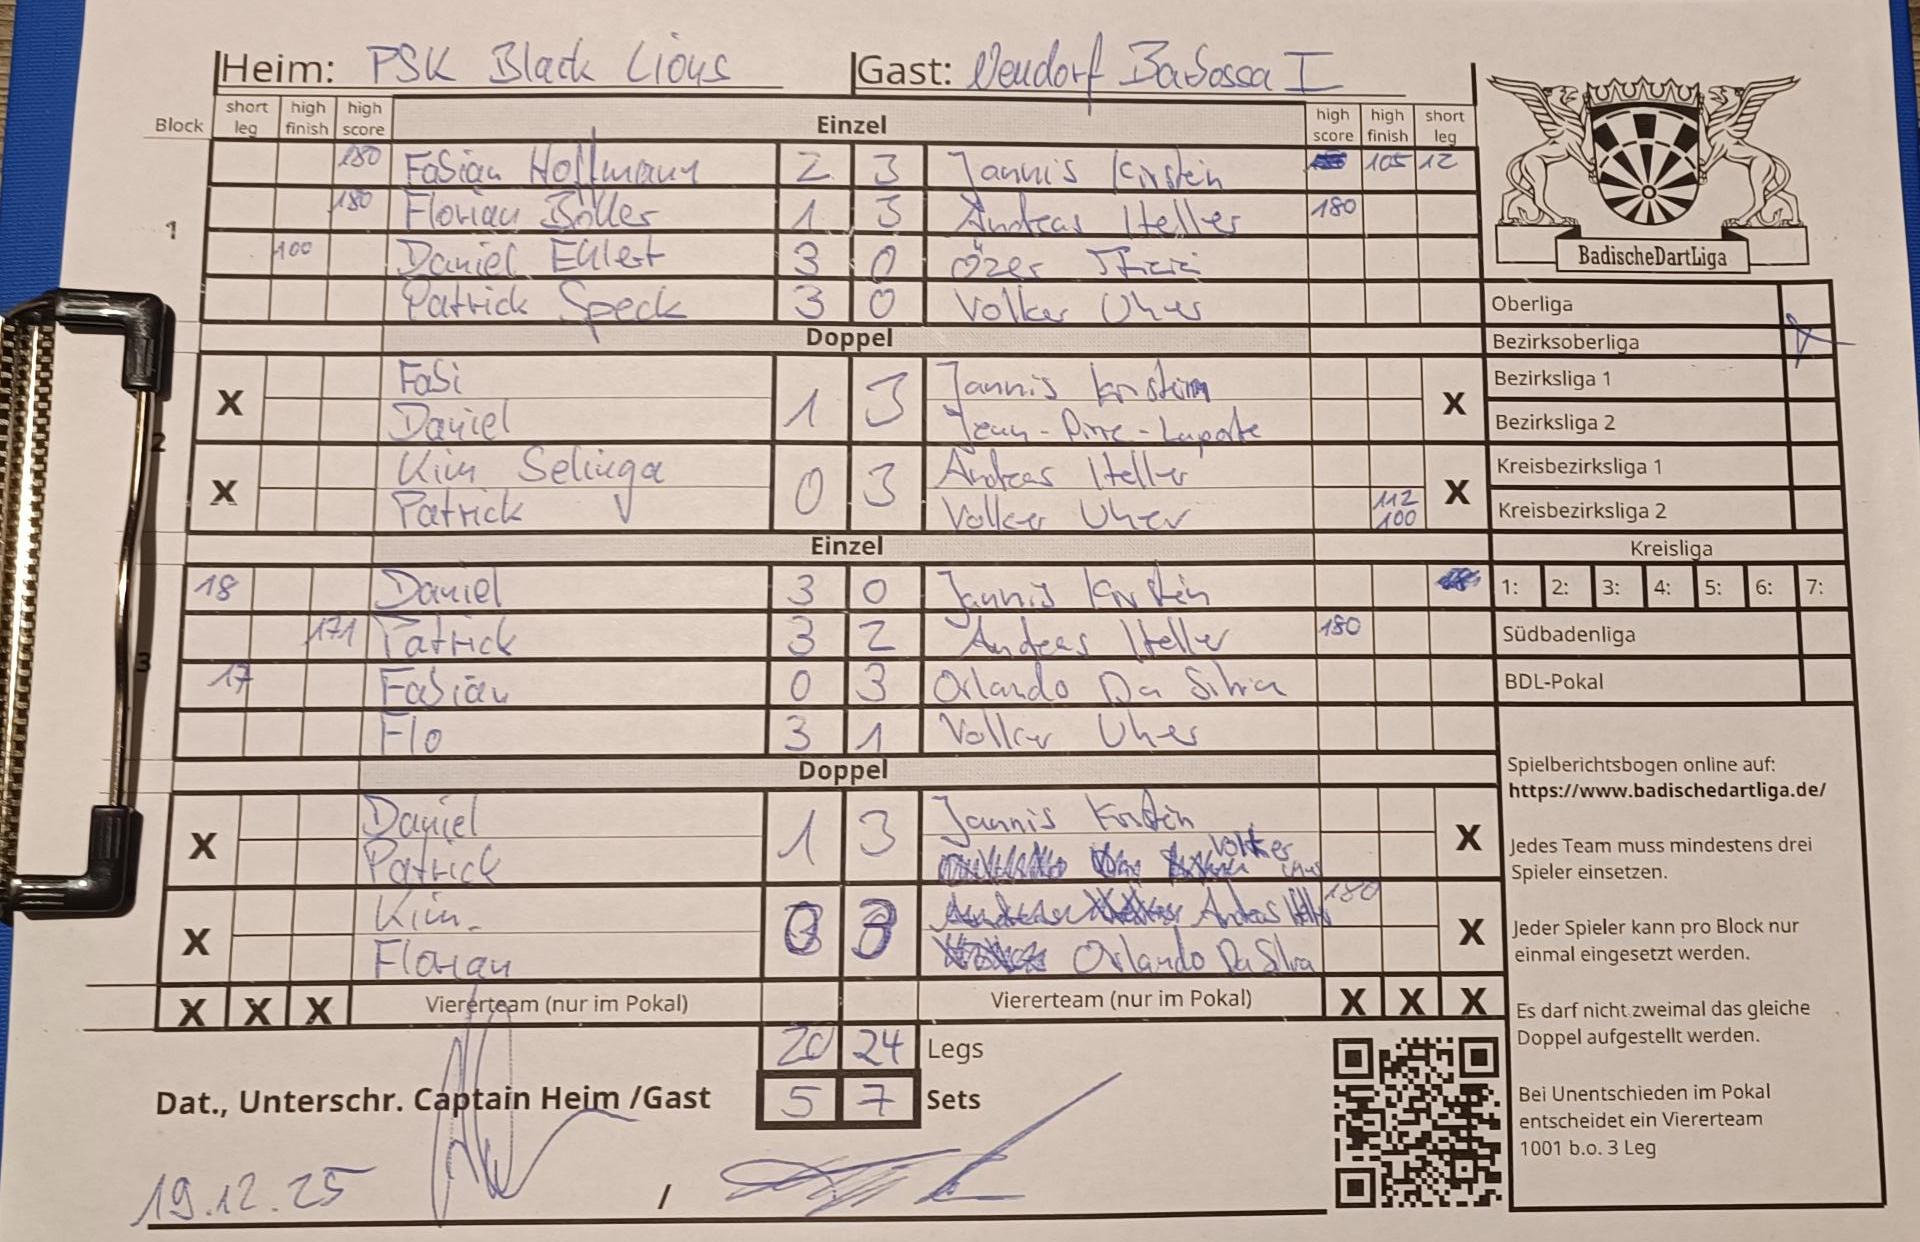 Heim: PSK Black Lions Gast: Neudorf Barbossa I
Block short leg high finish high score Einzel high score high finish short leg
180 Fabian Hoffmann 2 3 Jannis Kirstein 105 12
1
180 Florian Böller 1 3 Andreas Heller 180
100 Daniel Ehlert 3 0 Özer
Patrick Speck 3 0 Volker Uher
Doppel
X Fabi 1 3 Jannis Kirstein X
Daniel Jean-Pirre-Laporte
2
X Kim Selinga 0 3 Andreas Heller X
Patrick Volker Uher 112 100
Einzel
18 Daniel 3 0 Jannis Kirstein
171 Patrick 3 2 Andreas Heller 180
3
17 Fabian 0 3 Orlando Da Silva
Flo 3 1 Volker Uher
Doppel
X Daniel 1 3 Jannis Kirstein X
Patrick Volker
X Kim 3 Andreas Heller 180 X
Florian Orlando Da Silva
X X X Viererteam (nur im Pokal) Viererteam (nur im Pokal) X X X
20 24 Legs
Dat., Unterschr. Captain Heim /Gast 5 7 Sets
19.12.25 /
BadischeDartLiga
Oberliga
Bezirksoberliga X
Bezirksliga 1
Bezirksliga 2
Kreisbezirksliga 1
Kreisbezirksliga 2
Kreisliga
1: 2: 3: 4: 5: 6: 7:
Südbadenliga
BDL-Pokal
Spielberichtsbogen online auf:
https://www.badischedartliga.de/
Jedes Team muss mindestens drei
Spieler einsetzen.
Jeder Spieler kann pro Block nur
einmal eingesetzt werden.
Es darf nicht zweimal das gleiche
Doppel aufgestellt werden.
Bei Unentschieden im Pokal
entscheidet ein Viererteam
1001 b.o. 3 Leg